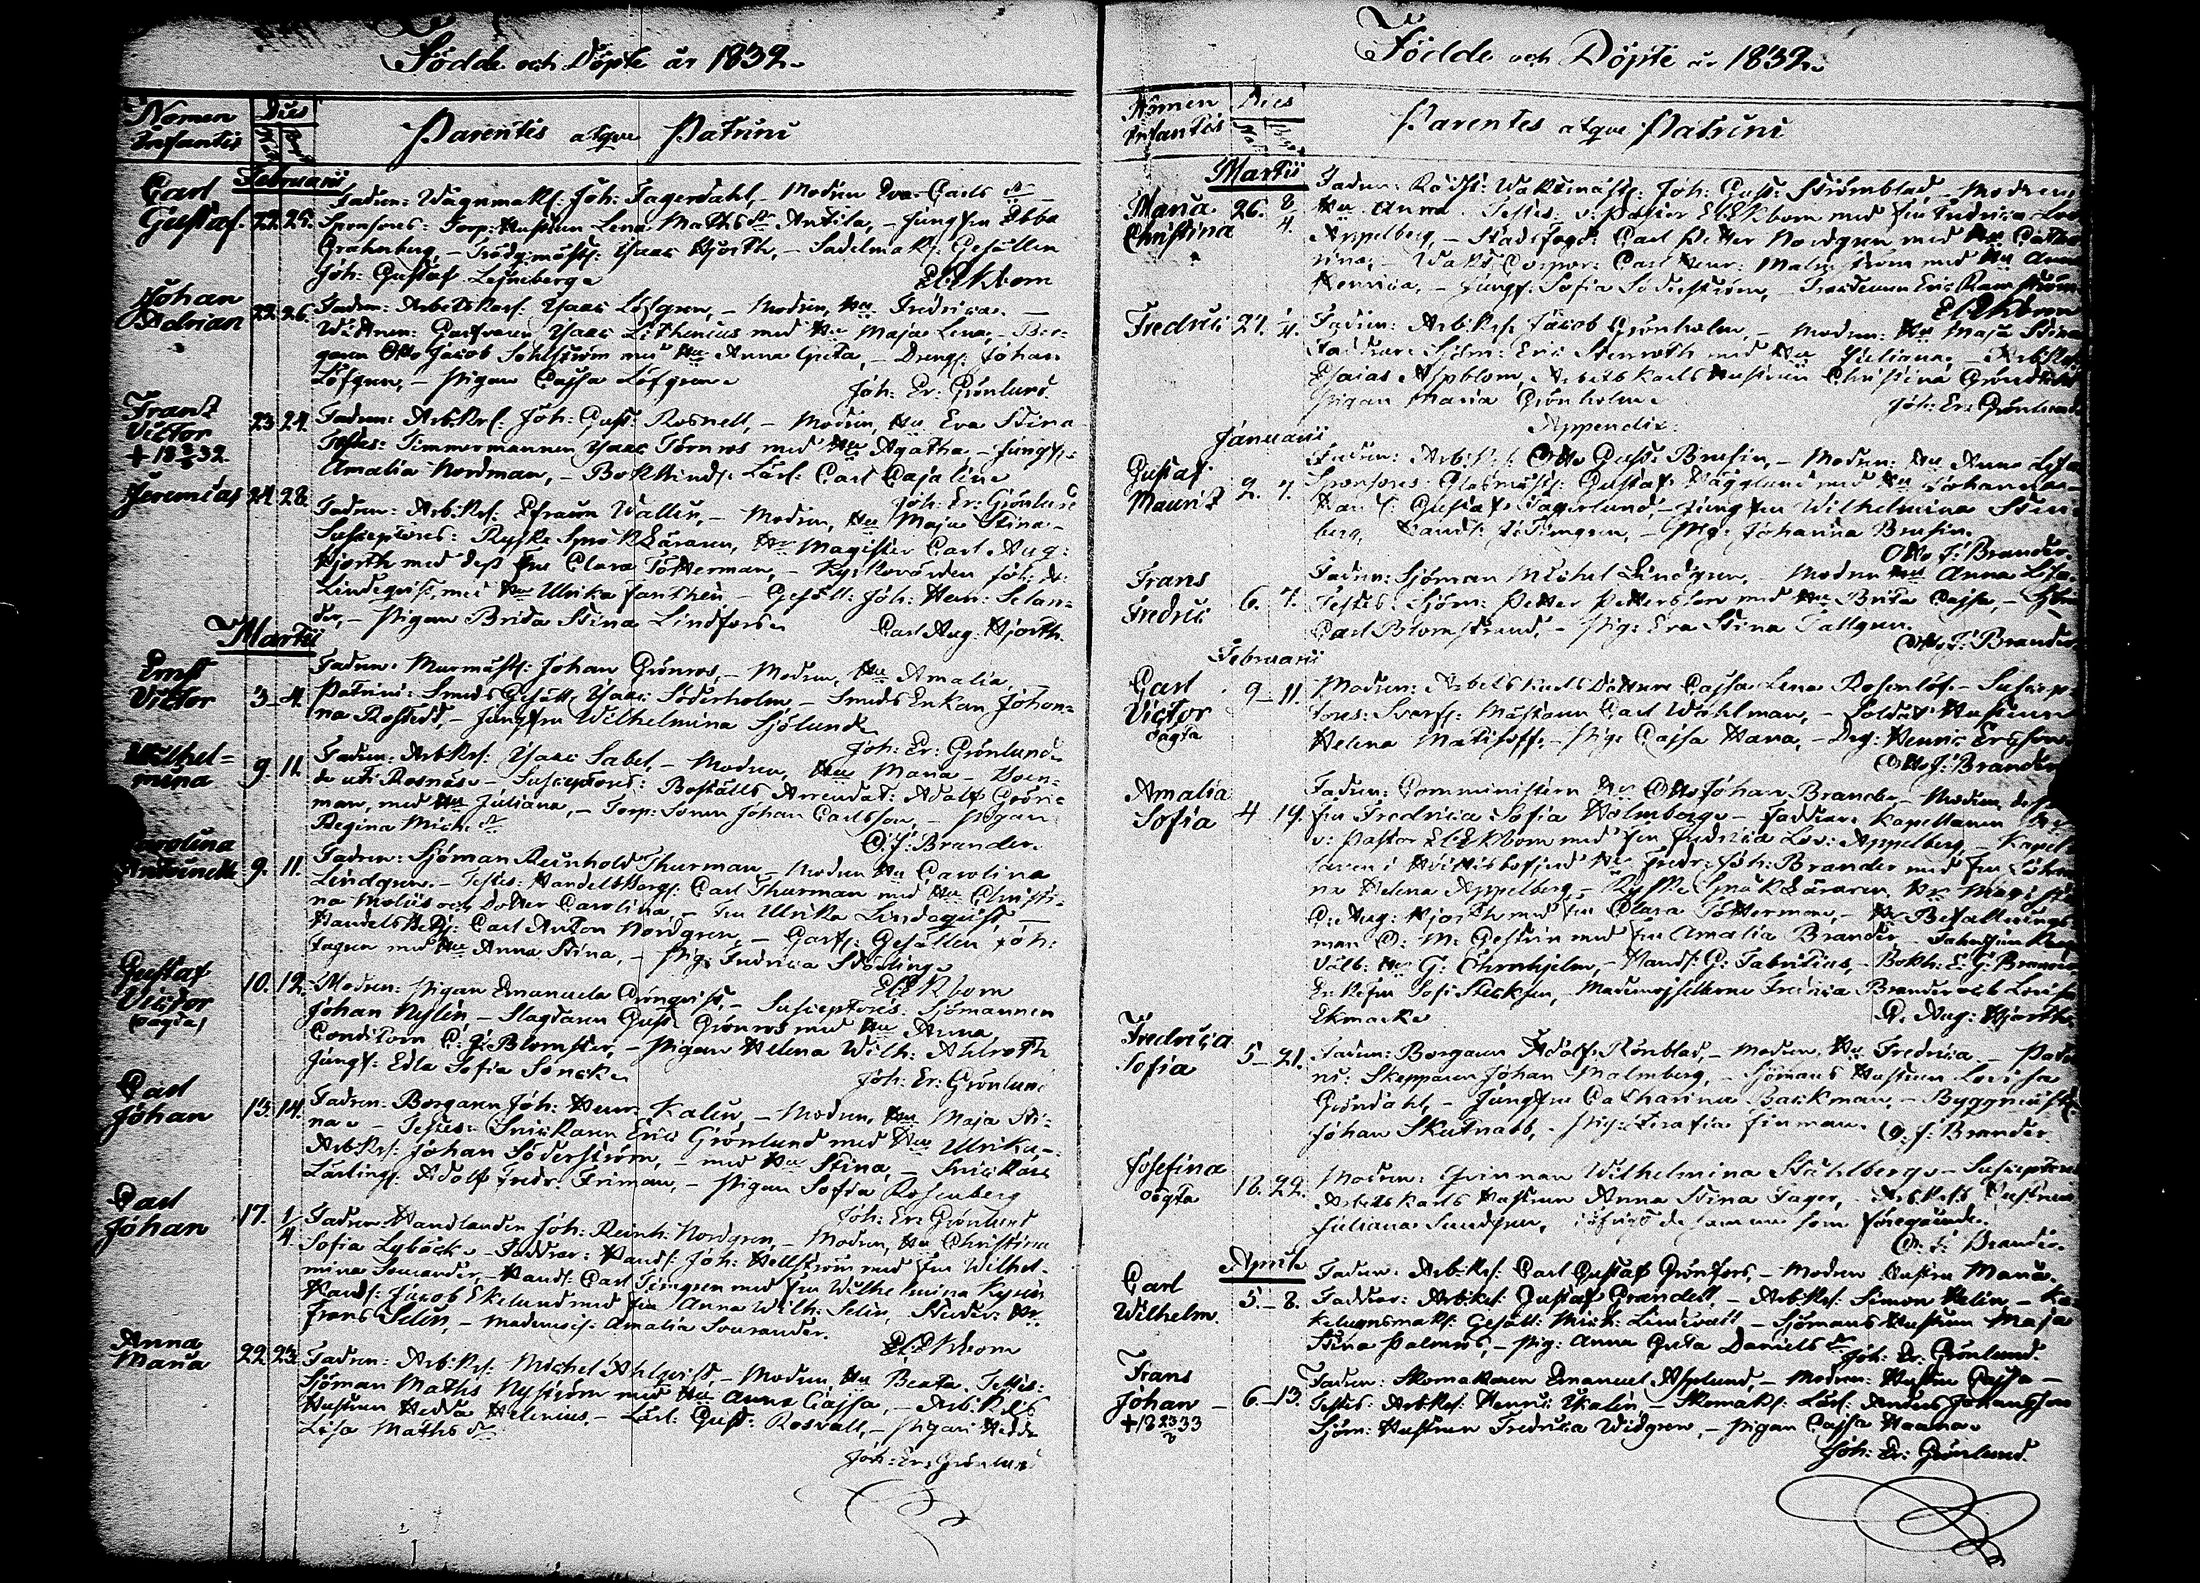 Födde och Döpte år 1832.
Nomen Infantis
Dies
Parentes atque Patrini
Februarii
Carl Gustaf. 22. 25. Fadren: Vagnmak: Joh: Fagerdahl, – Modren Eva Carls dr
Sponsores: Torp: Hustrun Lena Maths dr Antila, – Jungfru Ebba
Grahnberg, – Trädg:mäst: Isaac Hjorth, – Sadelmak: Gesällen
Joh: Gustaf
El: Ekbom
Johan Adrian 22. 26. Fadren: Arbetskarl: Isaac Löfgren, – Modren, Hu Fredrica. –
Wittnen: Isaac Lithenius med Hu Maja Lena, – Bor-
garen Otto Jacob Sohlström med Hu Anna Greta, – Dreng: Johan
Löfgren, – Pigan Cajsa Löfgren.
Joh: Er: Grönlund.
Frans Victor 23. 27. Fadren: Arb:Karl: Joh: Gust: Rosnell, – Modren, Hu Eva Stina
Testes: Timmermannen Isaac Törnros med Hu Agatha, – Jungf:
Amalia Nordman, – Bokbind: Lärl: Carl Cajalin.
Joh: Er: Grönlund
Jeremias 24. 28. Fadren: Arb:Karl: Efraim Wallin, – Modren, Hu Maja Stina –
Susceptores: Ryske Språk Läraren, Hr Magister Carl Aug:
Hjorth med dess Fru Clara Tötterman, – Kyrkovärden Joh: H:
Lindeqvist med Hu Ulrika – Gesäll: Joh: Henr: Selan-
der, – Pigan Brita Stina Lindfors.
Carl Aug: Hjorth.
Martii
Ernst Victor 3 – 4. Fadren: Murmäst: Johan Grönros, – Modren, Hu Amalia –
Patrini: Smeds Gesäll Isaac Söderholm, – Smeds Enkan Johan-
na Rostedt, – Jungfru Wilhelmina Sjölund.
Joh: Er: Grönlund.
Wilhel-mina 9. 11. Fadren: Arb:Karl: Isaac Sabel, – Modren, Hu Maria – Boen-
de uti Rosnäs. – Susceptores: Boställs Arrendat: Adolf Grön-
man, med Hu Juliana, – Torp: Sonen Johan Carlsson, – Pigan
Regina Mich: dr
O: J: Brander.
Carolina Antoinette 9. 11. Fadren: Sjöman Reinhold Thurman, – Modren Hu Carolina
Lindgren. – Testes: Handelsborg: Carl Thurman med Hu Christi-
na och Dotter Carolina, – Fru Ulrika Lindeqvist, –
Carl Anton Nordgren, – Garf: Gesällen Joh:
med Hu Anna Stina, – Pig: Fredrica
El: Ekbom
Gustaf Victor (oägta) 10. 12. Modren: Pigan Emanuela Grönqvist, – Susceptores: Sjömannen
Johan Nylin, – Slagtaren Gust: Grönros med Hu Anna
Conditorn C: J: Blomster, – Pigan Helena Wilh: Ahlroth
Jungf: Edla Sofia Soncke.
Joh: Er: Grönlund
Carl Johan 13. 14. Fadren: Borgaren Joh: Henr: Kalin, – Modren, Hu Maja Sti-
na. – Testes: Snickaren Eric Grönlund med Hu Ulrika, –
Arb:Karl: Johan Söderström, – med Hu Stina, – Snickare
Lärling: Adolf Fredr: Friman, – Pigan Sofia Rosenberg
Joh: Er: Grönlund
Carl Johan 17. 1/4 Fadren Handlanden Joh: Reinh: Nordgren, – Modren, Hu Christina
Sofia Lybäck. – Faddrar: Hand: Joh: Hellström med Fru Wilhel-
mina Sourander, – Hand: Carl Timgren med Fru Wilhelmina
Hand: Jacob Ekelund med Fru Anna Wilh: Selin, Studer: Hr
Frans Selin, – Mademois: Amalia Sourander.
El: Ekbom
Anna Maria 22. 23. Fadren: Arb:Karl: Michel Ahlqvist, – Modren Hu Beata. Testes:
Sjöman Maths Nyström med Hu Anna Cajsa, – Arb:Karls
Hustrun Hedda Helenius, – Lärl: Gust: Rosvall, – Pigan Hedda
Lisa Maths dr
Joh: Er: Grönlund
Födde och Döpte år 1832.
Nomen Infantis
Dies
Parentes atque Patrini
Martii
Maria Christina 26. 8/4. Fadren: Joh: Gust: Strömblad – Modren
Hu Anna. Testes: v: Pastor El: Ekbom med Fru Fredrica Lov:
Appelberg, – Stadsfogd: Carl Petter Nordgren med Hu Catha-
rina, – Carl Henr: Malmström med Hu Anna
Henrica, – Jungf: Sofia Söderström, –
El: Ekbom
Fredric 27. 1/4. Fadren: Arb:Karl: Jacob Grönholm, – Modren: Hu Maja Stina
Faddrar: Sjöm: Eric Stenroth med Hu Juliana, – Arb:Karl
Esaias Aspblom, Arbetskarls Hustrun Christina
Pigan Maria Grönholm.
Joh: Er: Grönlund
Appendix.
Januarii
Gustaf Maurits 2. 4. Fadren: Arb:Karl: Otto Gust: Brusin, – Modren: Hu Anna Lisa
Sponsores: Glasmäst: Gustaf Hägglund med Hu Johanna –
Hand: Gustaf Fagerlund, – Jungfru Wilhelmina Sten-
berg, Hand: J: Timgren, – Pig: Johanna Brusin.
Otto J: Brander.
Frans Fredric 6. 7. Fadren: Sjöman Michel Lindgren, – Modren Hu Anna Lisa.
Testes: Sjöm: Petter Pettersson med Hu Brita Cajsa, –
Carl Blomstrand, – Pig: Eva Stina Tallgren.
Otto J: Brander.
Februarii
Carl Victor oägta 9 – 11. Modren: Arbetskarls Dottren Cajsa Lena Rosenlöf. – Suscep-
tores: Svarf: Mästaren Carl Wahlman, – Soldat Hustrun
Helena Matisoff, – Pig: Cajsa Hava, – Drg: Henric Ericsson
Otto J: Brander
Amalia Sofia 4 – 19. Fadren: Comministern Hr Otto Johan Brander – Modren dess
Fru Fredrica Sofia Holmberg. – Faddrar: Kapellanen
v: Pastor El: Ekbom med Fru Fredrica Lov: Appelberg, – Kapel-
lanen i Hvittisbofjerd Hr Fredr: Joh: Brander med Fru Johan-
na Helena Appelberg, – Ryske Språk Läraren, Hr Magister
C: Aug: Hjorth med Fru Clara Tötterman, – Hr Befallnings-
man O: M: Gestrin med Fru Amalia Brander,
G: Ehrnhjelm, – Hand: G: Fabritius, – Bokh: E: G: Brander
Enkefru Sofi – Mademoisellerne Fredrica Brander och Lovisa
Ekmark.
C: Aug: Hjorth.
Fredrica Sofia 5 – 21. Fadren: Borgaren Adolf Rönblad, – Modren: Hu Fredrica. – Patri-
ni: Skepparen Johan Malmberg, – Sjömans Hustrun Lovisa
Gröndahl, – Jungfru Catharina Backman, – Byggmäst:
Johan Skutnabb, – Pig: Serafia Finman.
O: J: Brander.
Josefina oägta 18. 22. Modren: Qvinnan Wilhelmina Ståhlberg. – Susceptores
Arbetskarls Hustrun Anna Stina Fager, Arb:Karls Hustrun
Juliana Sundgren, de samma som föregående.
O: J: Brander.
Aprilis
Carl Wilhelm. 5. – 8. Fadren: Arb:Karl: Carl Gustaf Grönfors, – Modren Hustru Maria.
Faddrar: Arb:Karl: Gustaf Grandell, – Arb:Karl: Simon Helin, – Ka-
kelugnsmak: Gesäll: Mich: Lindevall – Sjömans Hustrun Maja
Stina Palmros, – Pig: Anna Greta Daniels dr
Joh: Er: Grönlund.
Frans Johan 6 – 13. Fadren: Skomakaren Emanuel Asplund, – Modren: Hustru Cajsa –
Testes: Arb:Karl: Henric Kalin, – Skomak: Lärl: Anders Johansson
Sjöm: Hustrun Fredrica Widgren, – Pigan Cajsa Haana.
Joh: Er: Grönlund.